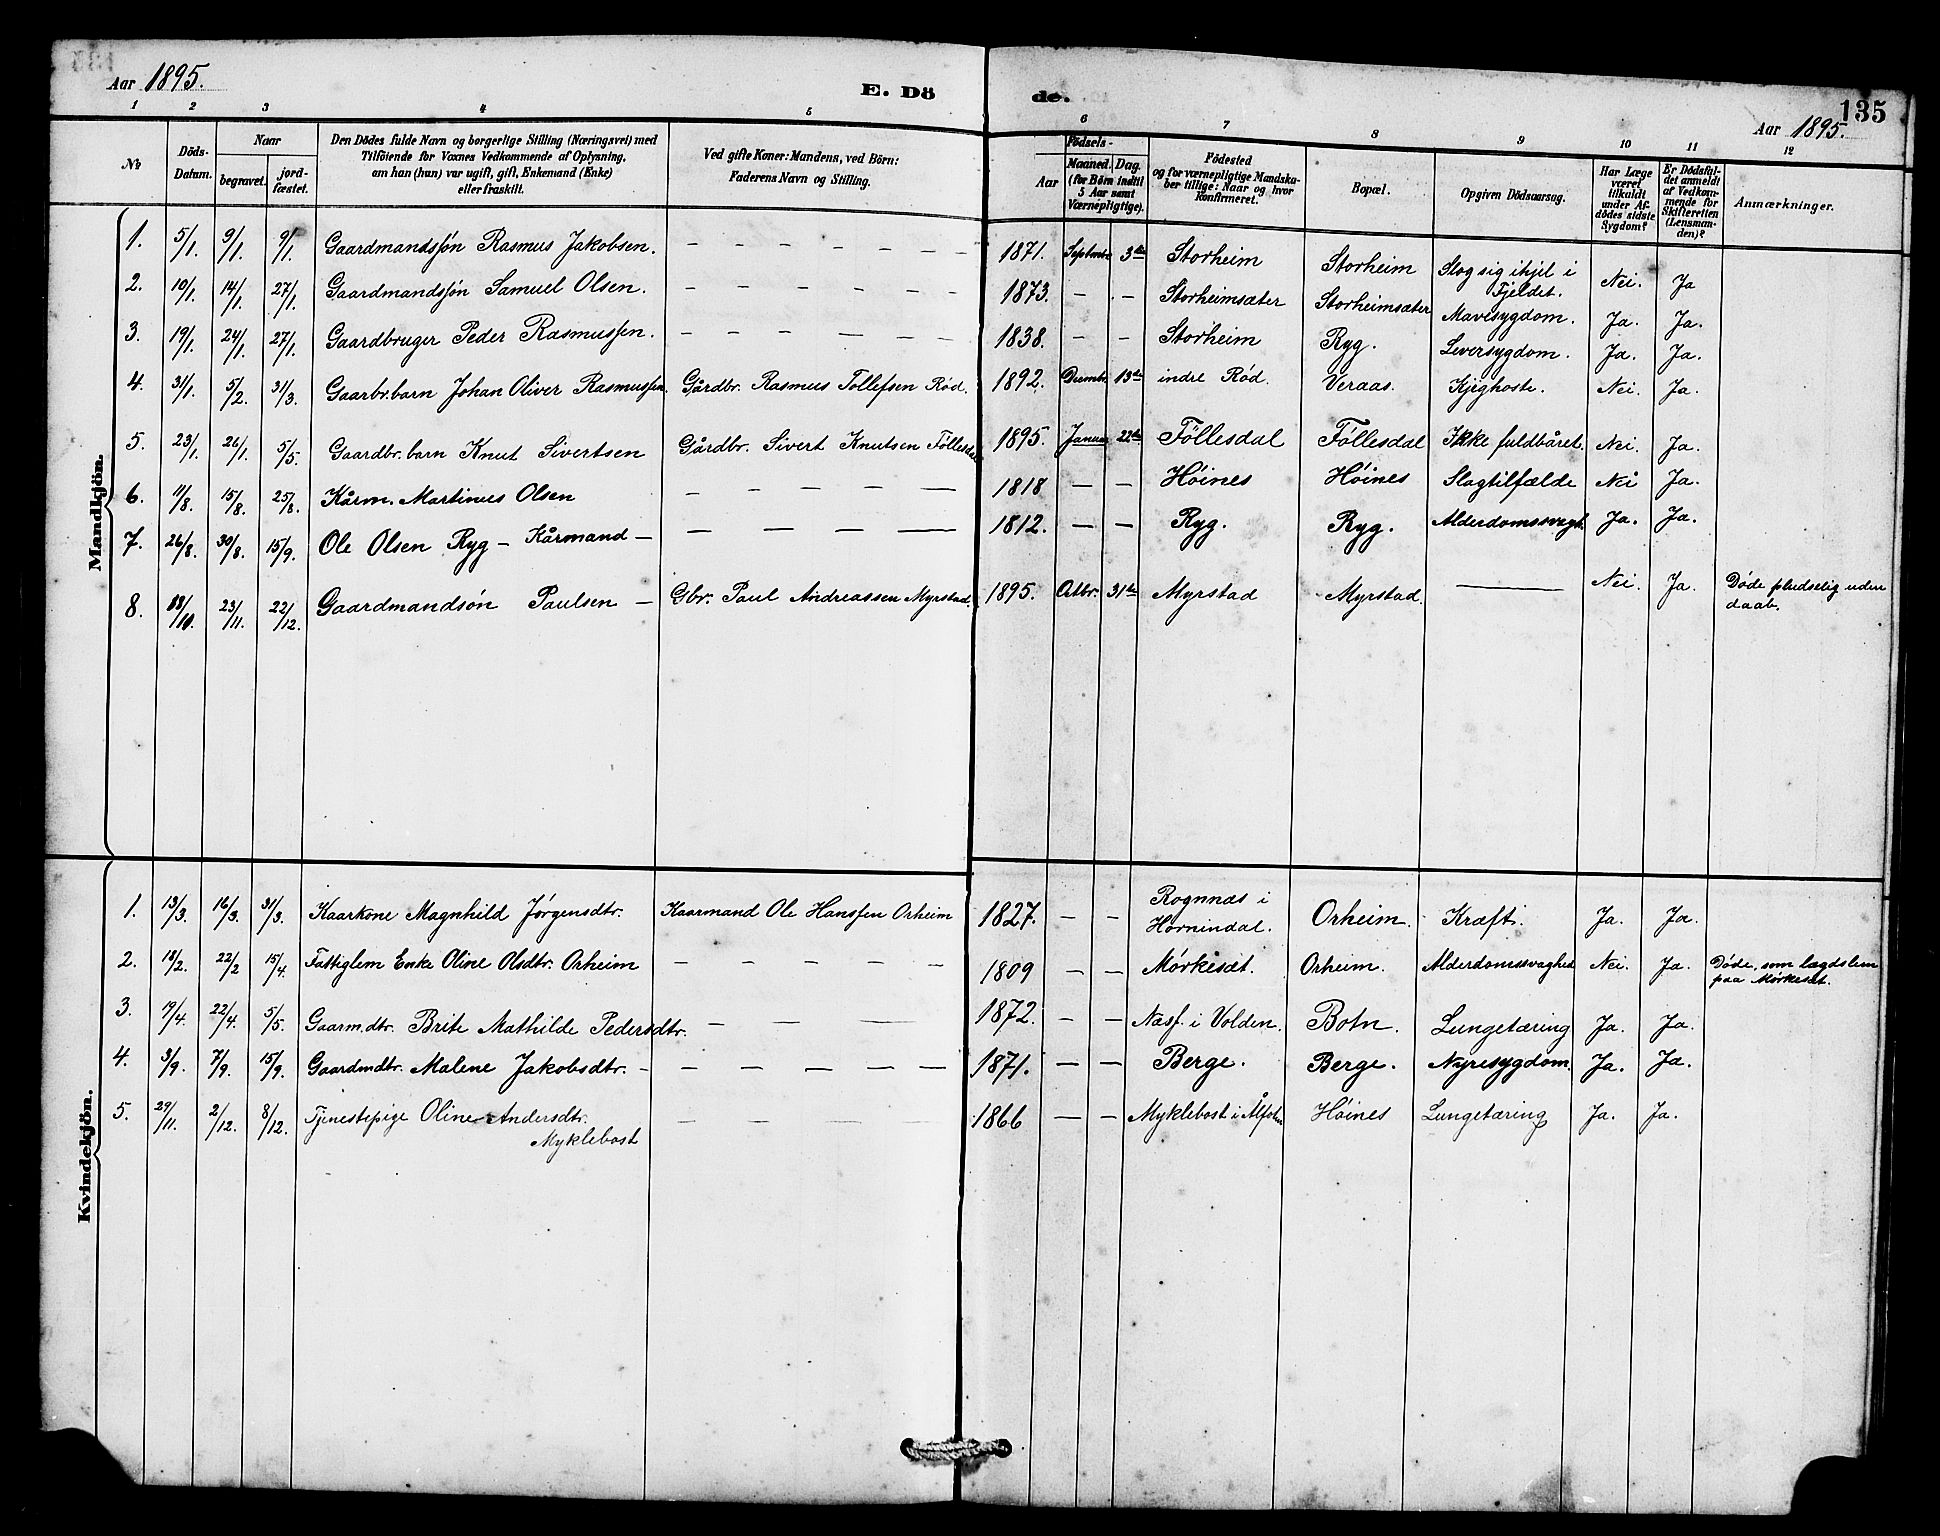 Aar 1895. E. Dö de. 135
Aar 1895.
1 2 3 4 5 6 7 8 9 10 11 12
№ Döds-Datum. Naar begravet. jordfæstet. Den Dödes fulde Navn og borgerlige Stilling (Næringsvei) med Tilföiende for Voxnes Vedkommende af Oplysning, om han (hun) var ugift, gift, Enkemand (Enke) eller fraskilt. Ved gifte Koner: Mandens, ved Börn: Faderens Navn og Stilling. Födsels- Aar Maaned. Dag. (for Börn indtil 5 Aar samt Værnepligtige). Födested og for værnepligtige Mandskaber tillige: Naar og hvor Konfirmeret. Bopæl. Opgiven Dödsaarsag. Har Læge været tilkaldt under Afdödes sidste Sygdom? Er Dödsfaldet anmeldt af Vedkommende for Skifteretten (Lensmanden)? Anmærkninger.
Mandkjön.
1. 5/1. 9/1. 9/1. Gaardmandssøn Rasmus Jakobsen. — — — — — — 1871. Septmbr 3die Storheim Storheim Slog sig ihjel i Fjeldet. Nei. Ja
2. 10/1. 14/1. 27/1. Gaardmandssøn Samuel Olsen. — — — — — — 1873. — — Storheimsæter Storheimsæter Mavesygdom. Ja. Ja.
3. 19/1. 24/1. 27/1. Gaardbruger Peder Rasmussen. — — — — — — 1838. — — Storheim Ryg. Leversygdom. Ja. Ja.
4. 31/1. 5/2. 31/3. Gaarbr. barn Johan Oliver Rasmussen Gårdbr. Rasmus Tollefsen Rød. 1892. Desmbr. 13de indre Rød. Veraas. Kjighoste. Nei. Ja.
5. 23/1. 26/1. 5/5. Gaardbr. barn Knut Sivertsen Gårdbr. Sivert Knutsen Føllesdal 1895. Januar 22de Føllesdal Føllesdal Ikke fuldbåret. Nei. Ja.
6. 11/8. 15/8. 25/8. Kårm. Martinus Olsen — — — — — 1818 — — Høines Høines Slagtilfælde Nei Ja.
7. 26/8. 30/8. 15/9. Ole Olsen Ryg — Kårmand — — — — — 1812. — — Ryg. Ryg. Alderdomssvagh. Ja. Ja.
8. 18/11. 23/11. 22/12. Gaardmandsøn Paulsen — Gbr. Paul Andreassen Myrstad. 1895. Octbr. 31te Myrstad Myrstad. — Nei. Ja. Døde pludselig uden daab.
Kvindekjön.
1. 13/3. 16/3. 31/3. Kaarkone Magnhild Jørgensdtr. Kaarmand Ole Hanssen Orheim 1827. — — Rognnæs i Hornindal. Orheim. Kræft. Ja. Ja.
2. 18/2. 22/2 15/4. Fattiglem Enke Oline Olsdtr. Orheim — — — — — — 1809 — — Mørkesæt. Orheim. Alderdomssvaghed Nei. Ja. Døde, som lægdslem paa Mørkesæt.
3. 19/4. 22/4. 5/5. Gaarm. dtr. Brite Mathilde Pedersdtr. — — — — 1872. — — Næsf. i Volden. Botn. Lungetæring Ja. Ja.
4. 3/9. 7/9. 15/9. Gaardmdtr. Malene Jakobsdtr. — — — — — — — 1871. — — Berge. Berge. Nyresygdom. Ja. Ja.
5. 29/11. 2/12. 8/12. Tjenestepige Oline Andersdtr. Myklebost — — — — — 1866 — — Myklebost i Ålfoten Høines Lungetæring Ja. Ja.